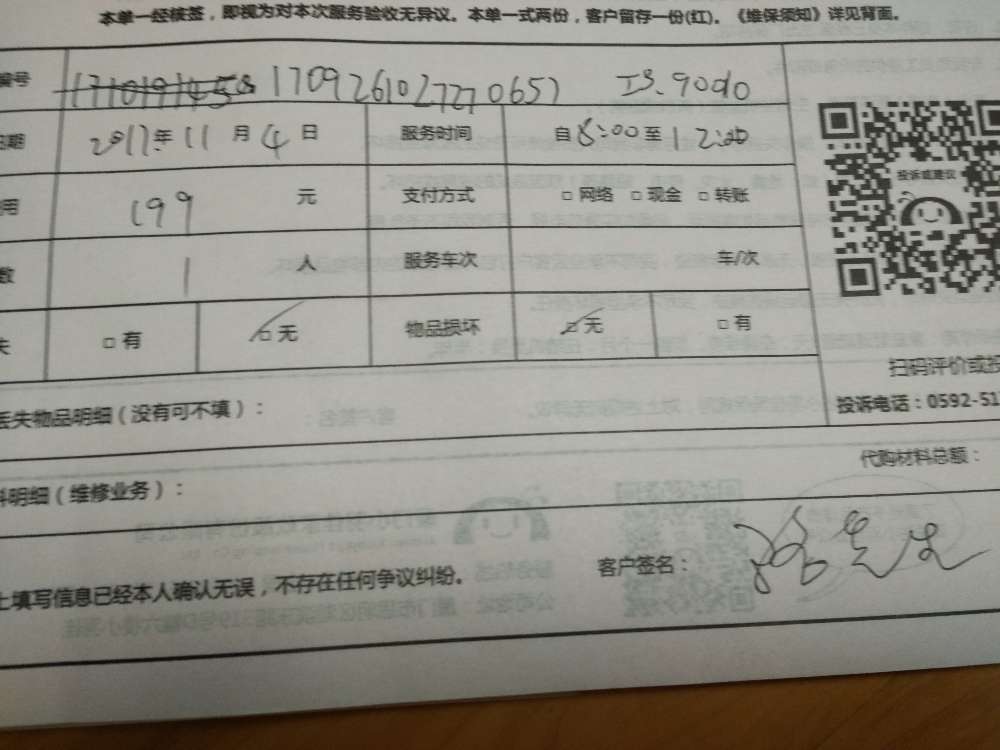 本单一经核签，即视为对本次服务验收无异议。本单一式两份，客户留存一份(红)。《维保须知》详见背面。
编号 1709261027270657
日期 2017年 11 月 4 日 服务时间 自 8:00 至 12:00
用 199 元 支付方式 □ 网络 □ 现金 □ 转账
数 1 人 服务车次 车/次
失 □ 有 □ 无 物品损坏 □ 无 □ 有
投诉或建议
扫码评价或投
丢失物品明细（没有可不填）： 投诉电话：0592-51
料明细（维修业务）： 代购材料总额：
上填写信息已经本人确认无误，不存在任何争议纠纷。 客户签名：